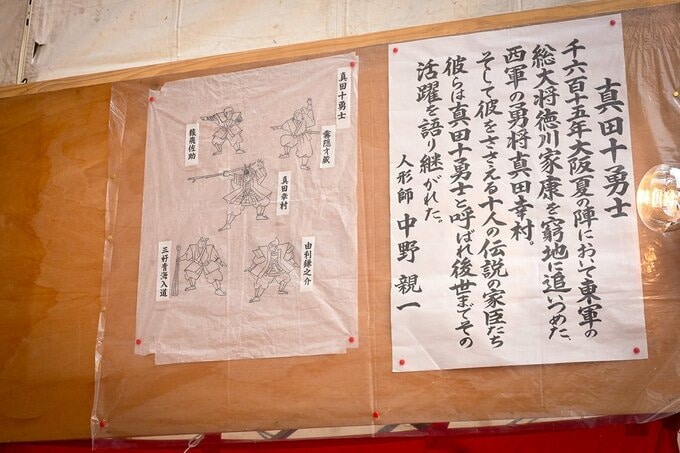 真田十勇士
千六百十五年大阪夏の陣において東軍の
総大将徳川家康を窮地に追いつめた、
西軍の勇将真田幸村。
そして彼をささえる十人の伝説の家臣たち
彼らは真田十勇士と呼ばれ後世までその
活躍を語り継がれた。
人形師 中野 親一
真田十勇士
霧隠才蔵
猿飛佐助
真田幸村
由利鎌之介
三好青海入道